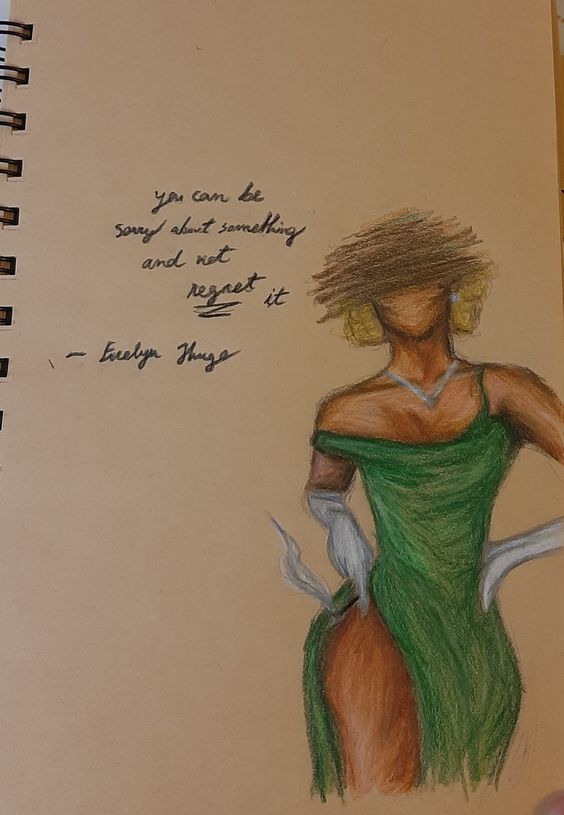 you can be
sorry about something
and not
regret it
— Evelyn Hugo